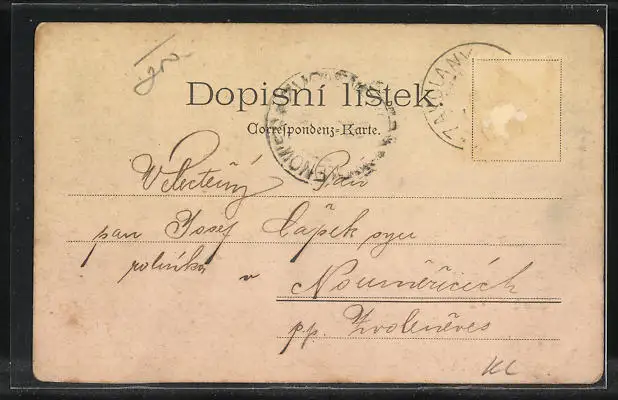 Dopisní lístek.
Correspondenz-Karte.
Velectěný Pan
pan Josef Čápek synu
rolníka v
Nouměřicích
p.p. Zvoleněves